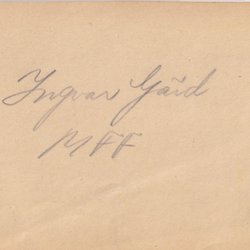 Ingvar Gärd
MFF